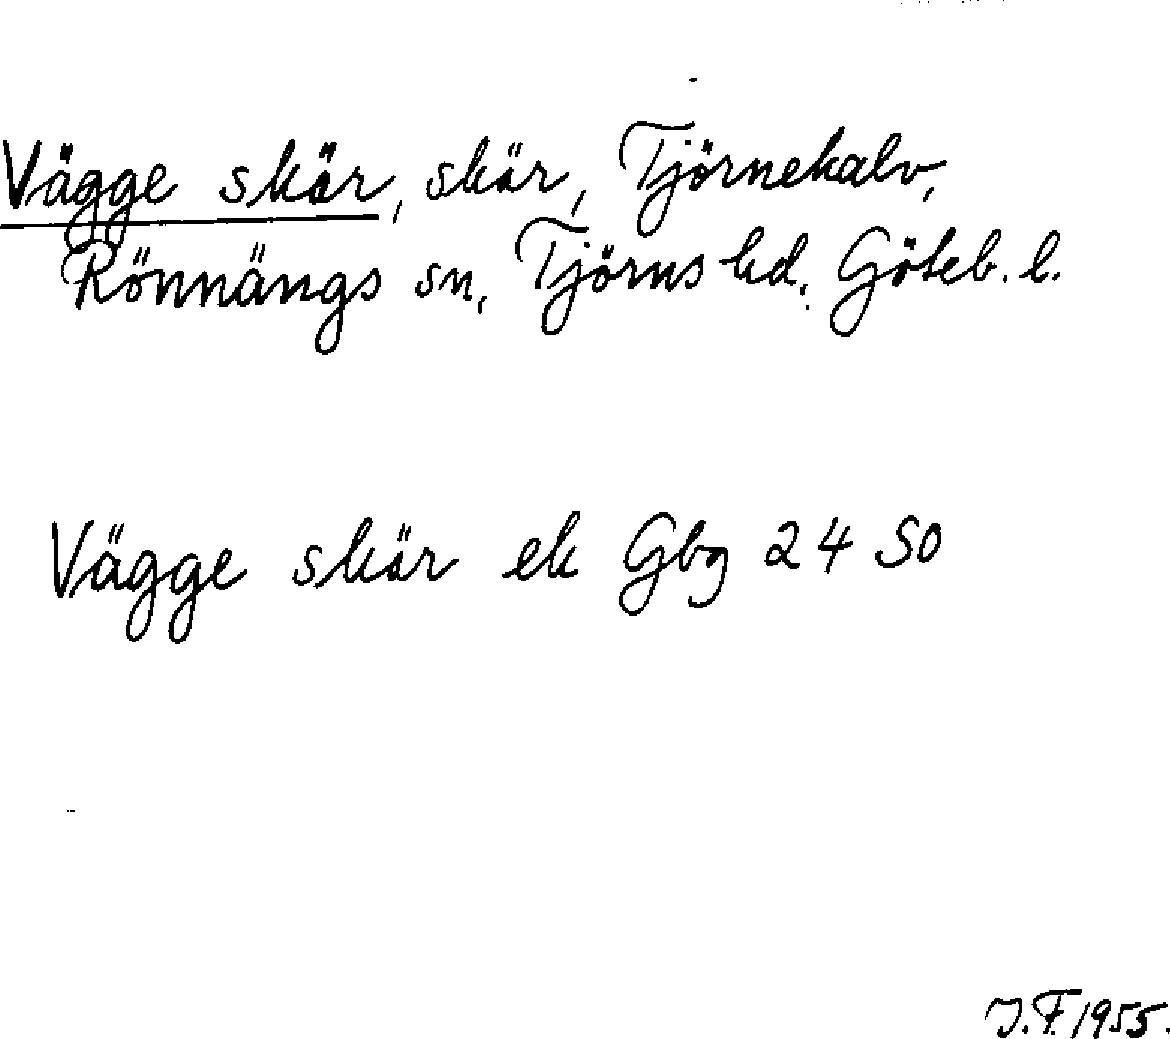 Vägge skär, skär, Tjörnekalv,
Rönnängs sn, Tjörns hd, Göteb. l.
Vägge skär ek Gbg 24 SO
J.F. 1955.